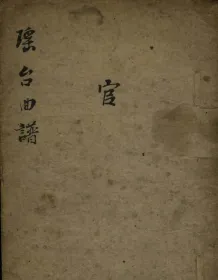 宫
瑶台曲譜